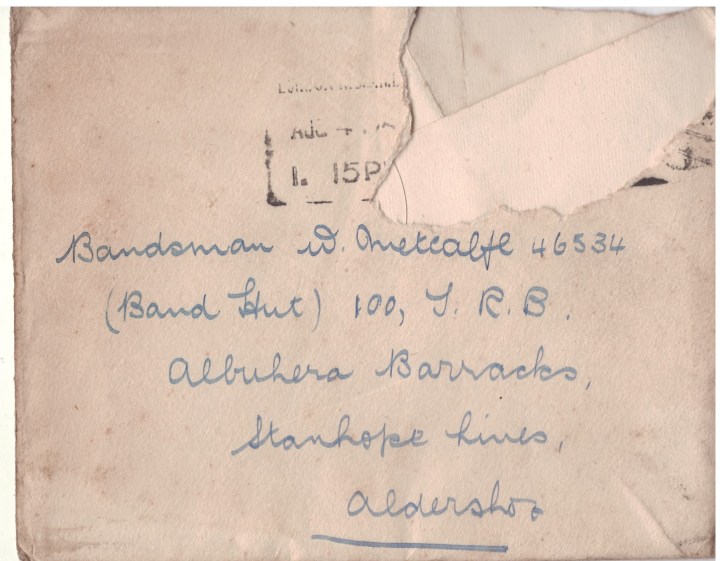 AUG 4
1. 15P
Bandsman W. Metcalfe 46534
(Band Hut) 100, T. R. B.
Albuhera Barracks,
Stanhope Lines,
Aldershot